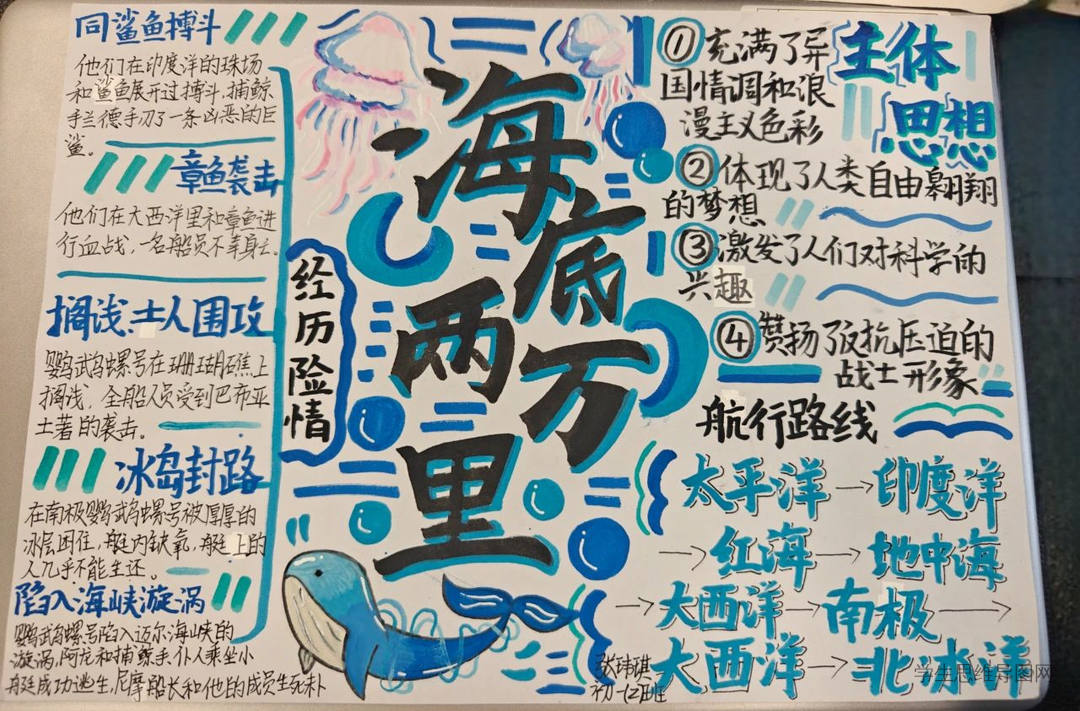 同鲨鱼搏斗
他们在印度洋的珠场
和鲨鱼展开过搏斗,捕鲸
手兰德手刃了一条凶恶的巨
鲨。
章鱼袭击
他们在大西洋里和章鱼进
行血战,一名船员不幸身亡。
搁浅、土人围攻
鹦鹉螺号在珊瑚礁上
搁浅,全船人员受到巴布亚
土著的袭击。
冰岛封路
在南极鹦鹉螺号被厚厚的
冰层困住,艇内缺氧,艇上的
人几乎不能生还。
陷入海峡漩涡
鹦鹉螺号陷入迈尔海峡的
漩涡,阿龙和捕鲸手、仆人乘坐小
艇成功逃生,尼摩船长和他的成员生死未卜
经历险情
海底
两万
里
主体
思想
①充满了异
国情调和浪
漫主义色彩
②体现了人类自由翱翔
的梦想
③激发了人们对科学的
兴趣
④赞扬了反抗压迫的
战士形象
航行路线
太平洋→印度洋
→红海→地中海
→大西洋→南极→
大西洋→北冰洋
张玮琪
初一(2)班
学生思维导图网